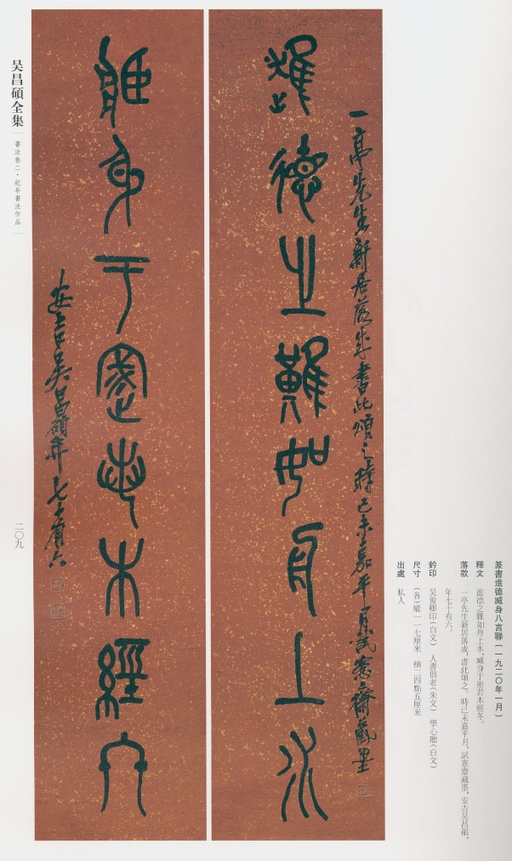 篆書進德臧身八言聯(一九二〇年一月)
釋文 進德之難如舟上水,臧身于密若木經冬。
落款 一亭先生新居落成,書此頌之。時己未嘉平月,試愙齋藏墨,安吉吳昌碩,
年七十有六。
鈐印 吳俊卿印(白文) 人書俱老(朱文) 學心聽(白文)
尺寸 (各)縱一一七厘米 橫二四點五厘米
出處 私人
一亭先生新居落成書此頌之時己未嘉平月試愙齋藏墨
進德之難如舟上水
臧身于密若木經冬
安吉吳昌碩年七十有六
吴昌碩全集
書法卷二·紀年書法作品
二〇九